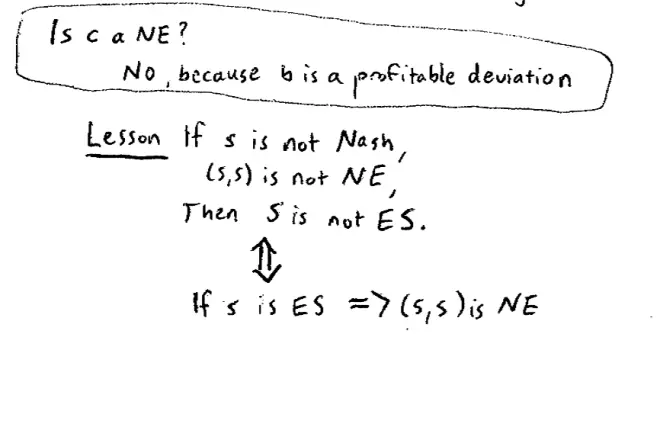 Is c a NE?
No, because b is a profitable deviation
Lesson If s is not Nash,
(s,s) is not NE,
Then S is not ES.
⇕
If s is ES => (s,s) is NE